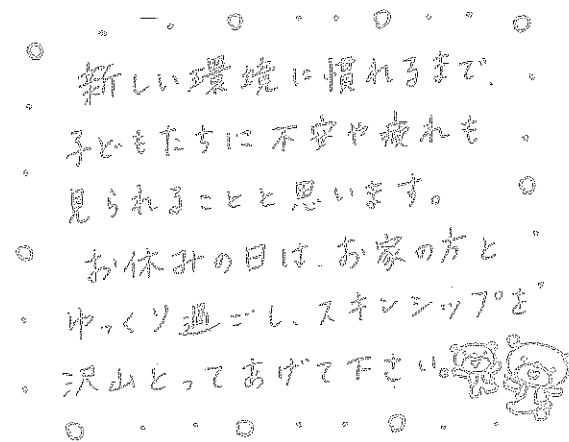 新しい環境に慣れるまで、
子どもたちに不安や疲れも
見られることと思います。
お休みの日は、お家の方と
ゆっくり過ごし、スキンシップを
沢山とってあげて下さい。